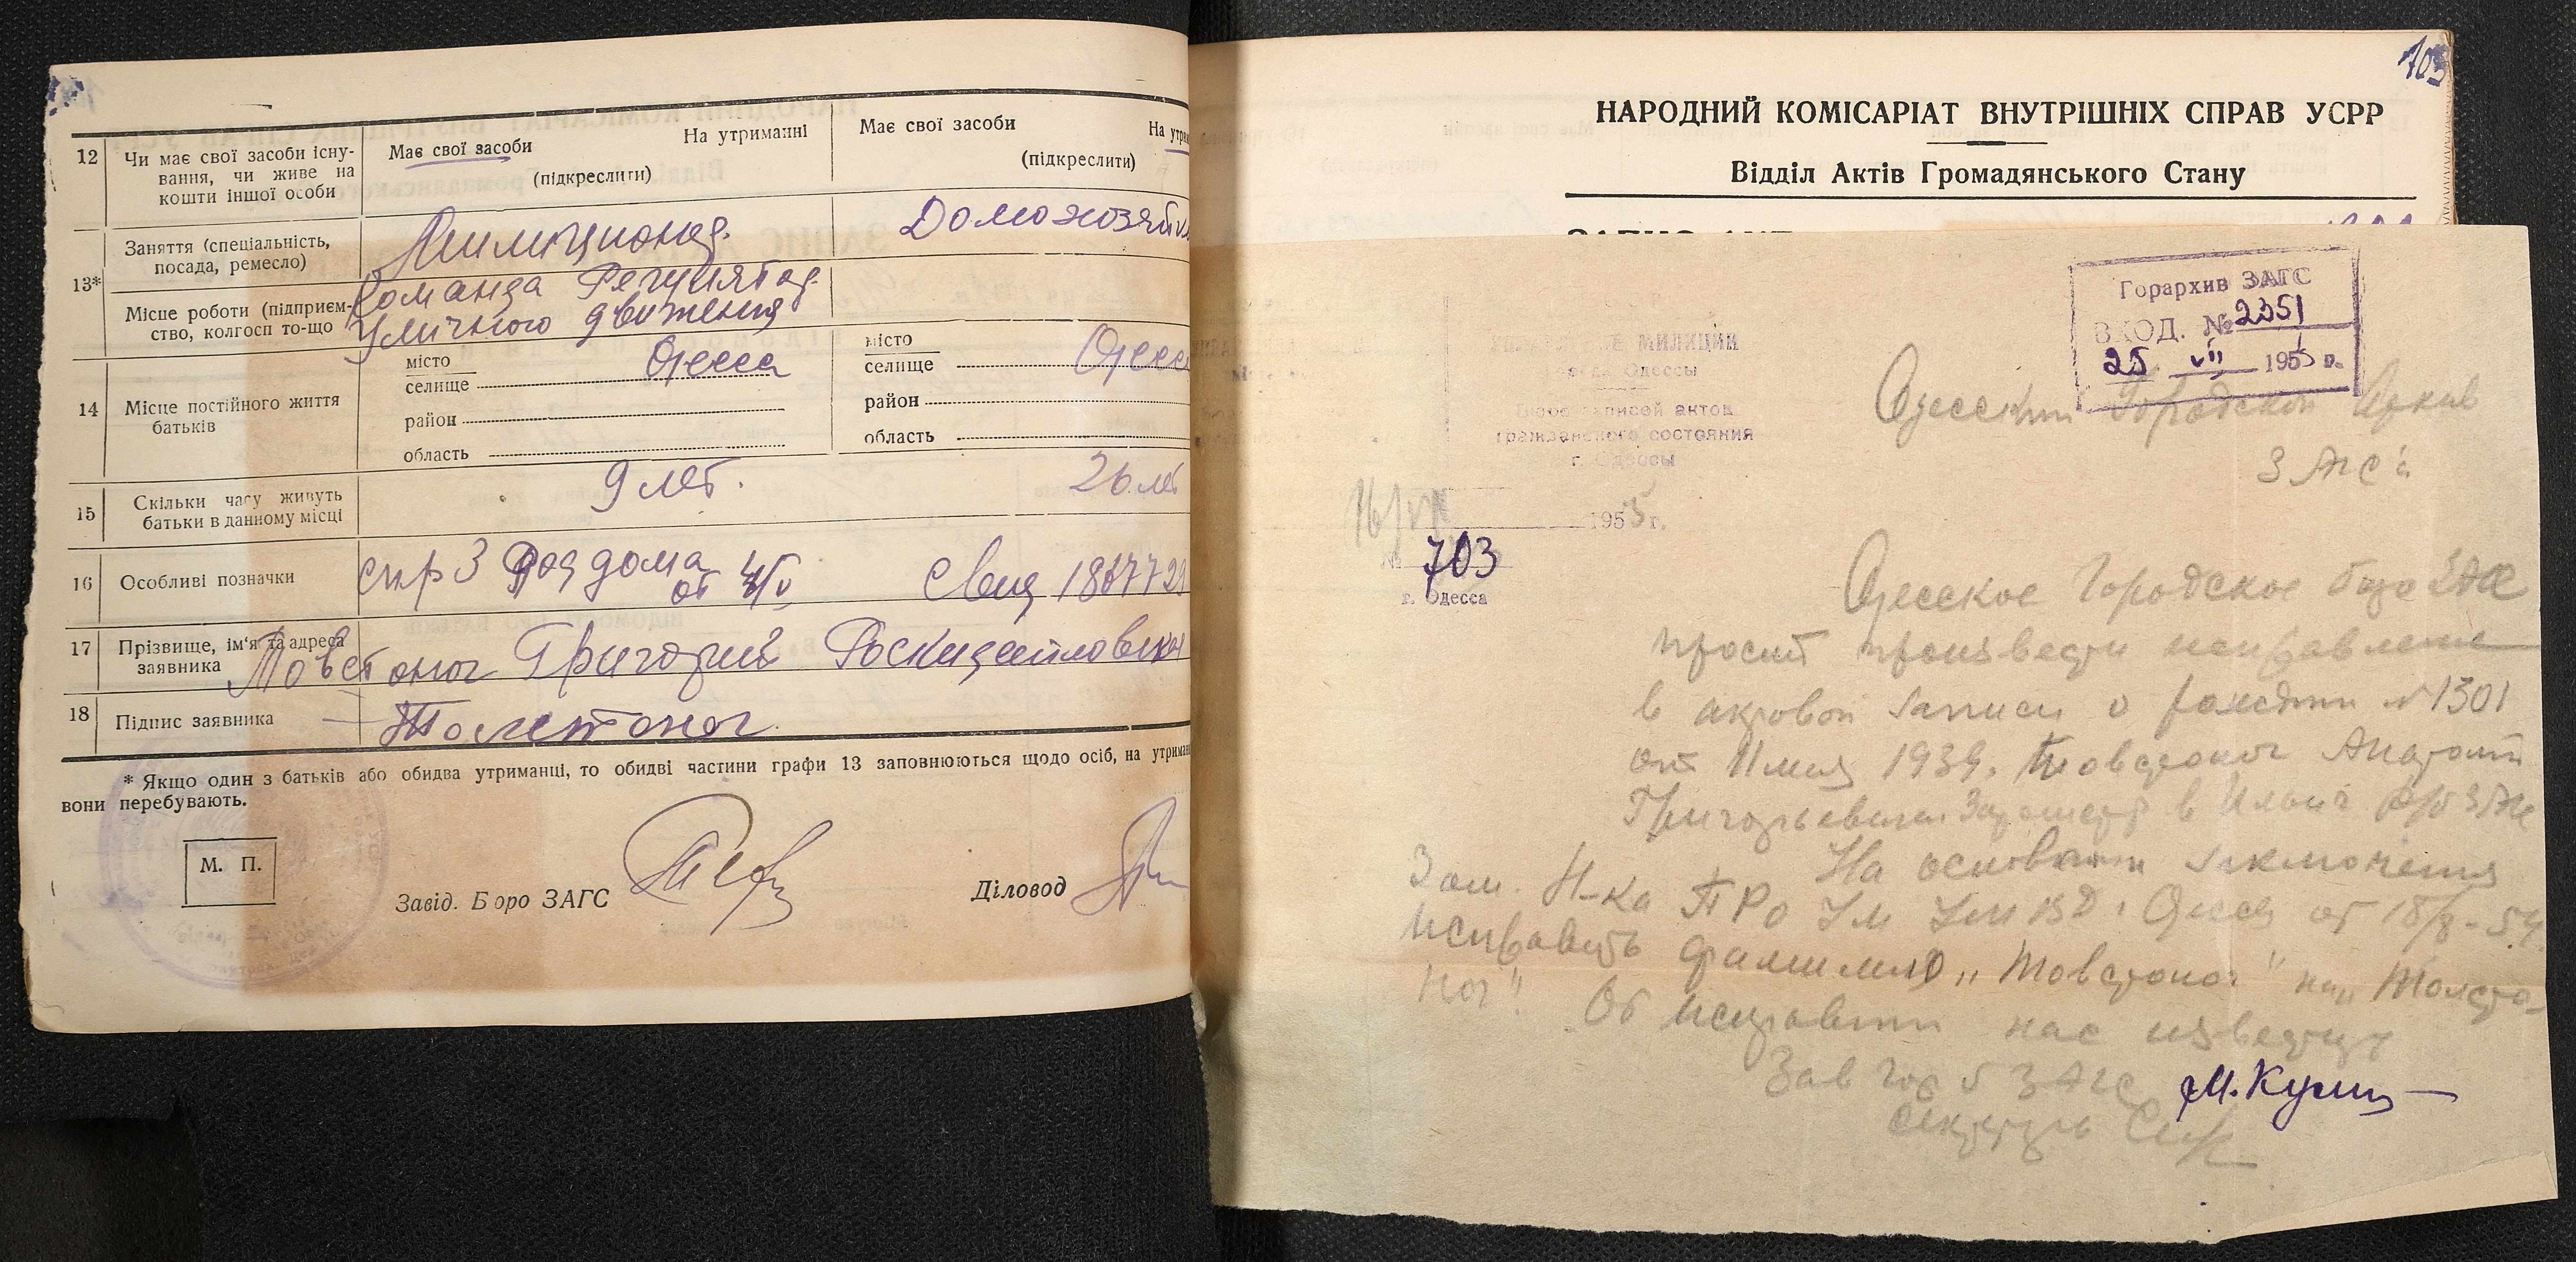 12
Чи має свої засоби існу-
вання, чи живе на
кошти іншої особи
Має свої засоби
На утриманні
(підкреслити)
Має свої засоби
На утрим
(підкреслити)
13*
Заняття (спеціальність,
посада, ремесло)
Милиционер.
Домохозяйк
Місце роботи (підприєм-
ство, колгосп то-що
Команда Регулятор.
Уличного движения
14
Місце постійного життя
батьків
місто
селище
Одесса
район
область
місто
селище
Одесс
район
область
15
Скільки часу живуть
батьки в данному місці
9 лет.
26 ле
16
Особливі позначки
спр 3 Род дома
от 4/V
17
Прізвище, ім'я та адреса
заявника
Товстоног Григорий
18
Підпис заявника
Толстоног
* Якщо один з батьків або обидва утриманці, то обидві частини графи 13 заповнюються щодо осіб, на утриман
вони перебувають.
М. П.
Завід. Бюро ЗАГС
Діловод
103
НАРОДНИЙ КОМІСАРІАТ ВНУТРІШНІХ СПРАВ УСРР
Відділ Актів Громадянського Стану
Горархив ЗАГС
ВХОД. № 2351
25 VII 1955 г.
УПРАВЛЕНИЕ МИЛИЦИИ
города Одессы
Бюро записей актов
гражданского состояния
г. Одессы
1955 г.
№ 703
г. Одесса
Одесский Городской Архив
ЗАГС'а
Одесское Городское бюро ЗАГС
просит произвести исправление
в актовой записи о рождении № 1301
от 11 мая 1939. Товстоног Анатолий
Григорьевич
На основании заключения
Зам. Н-ка ПРО УМ УМВД г. Одессы от 18/8-54
исправить фамилию „Товстоног" на „Толсто-
ног" Об исправлении нас известить
Зав Гор б ЗАГС
Секретарь